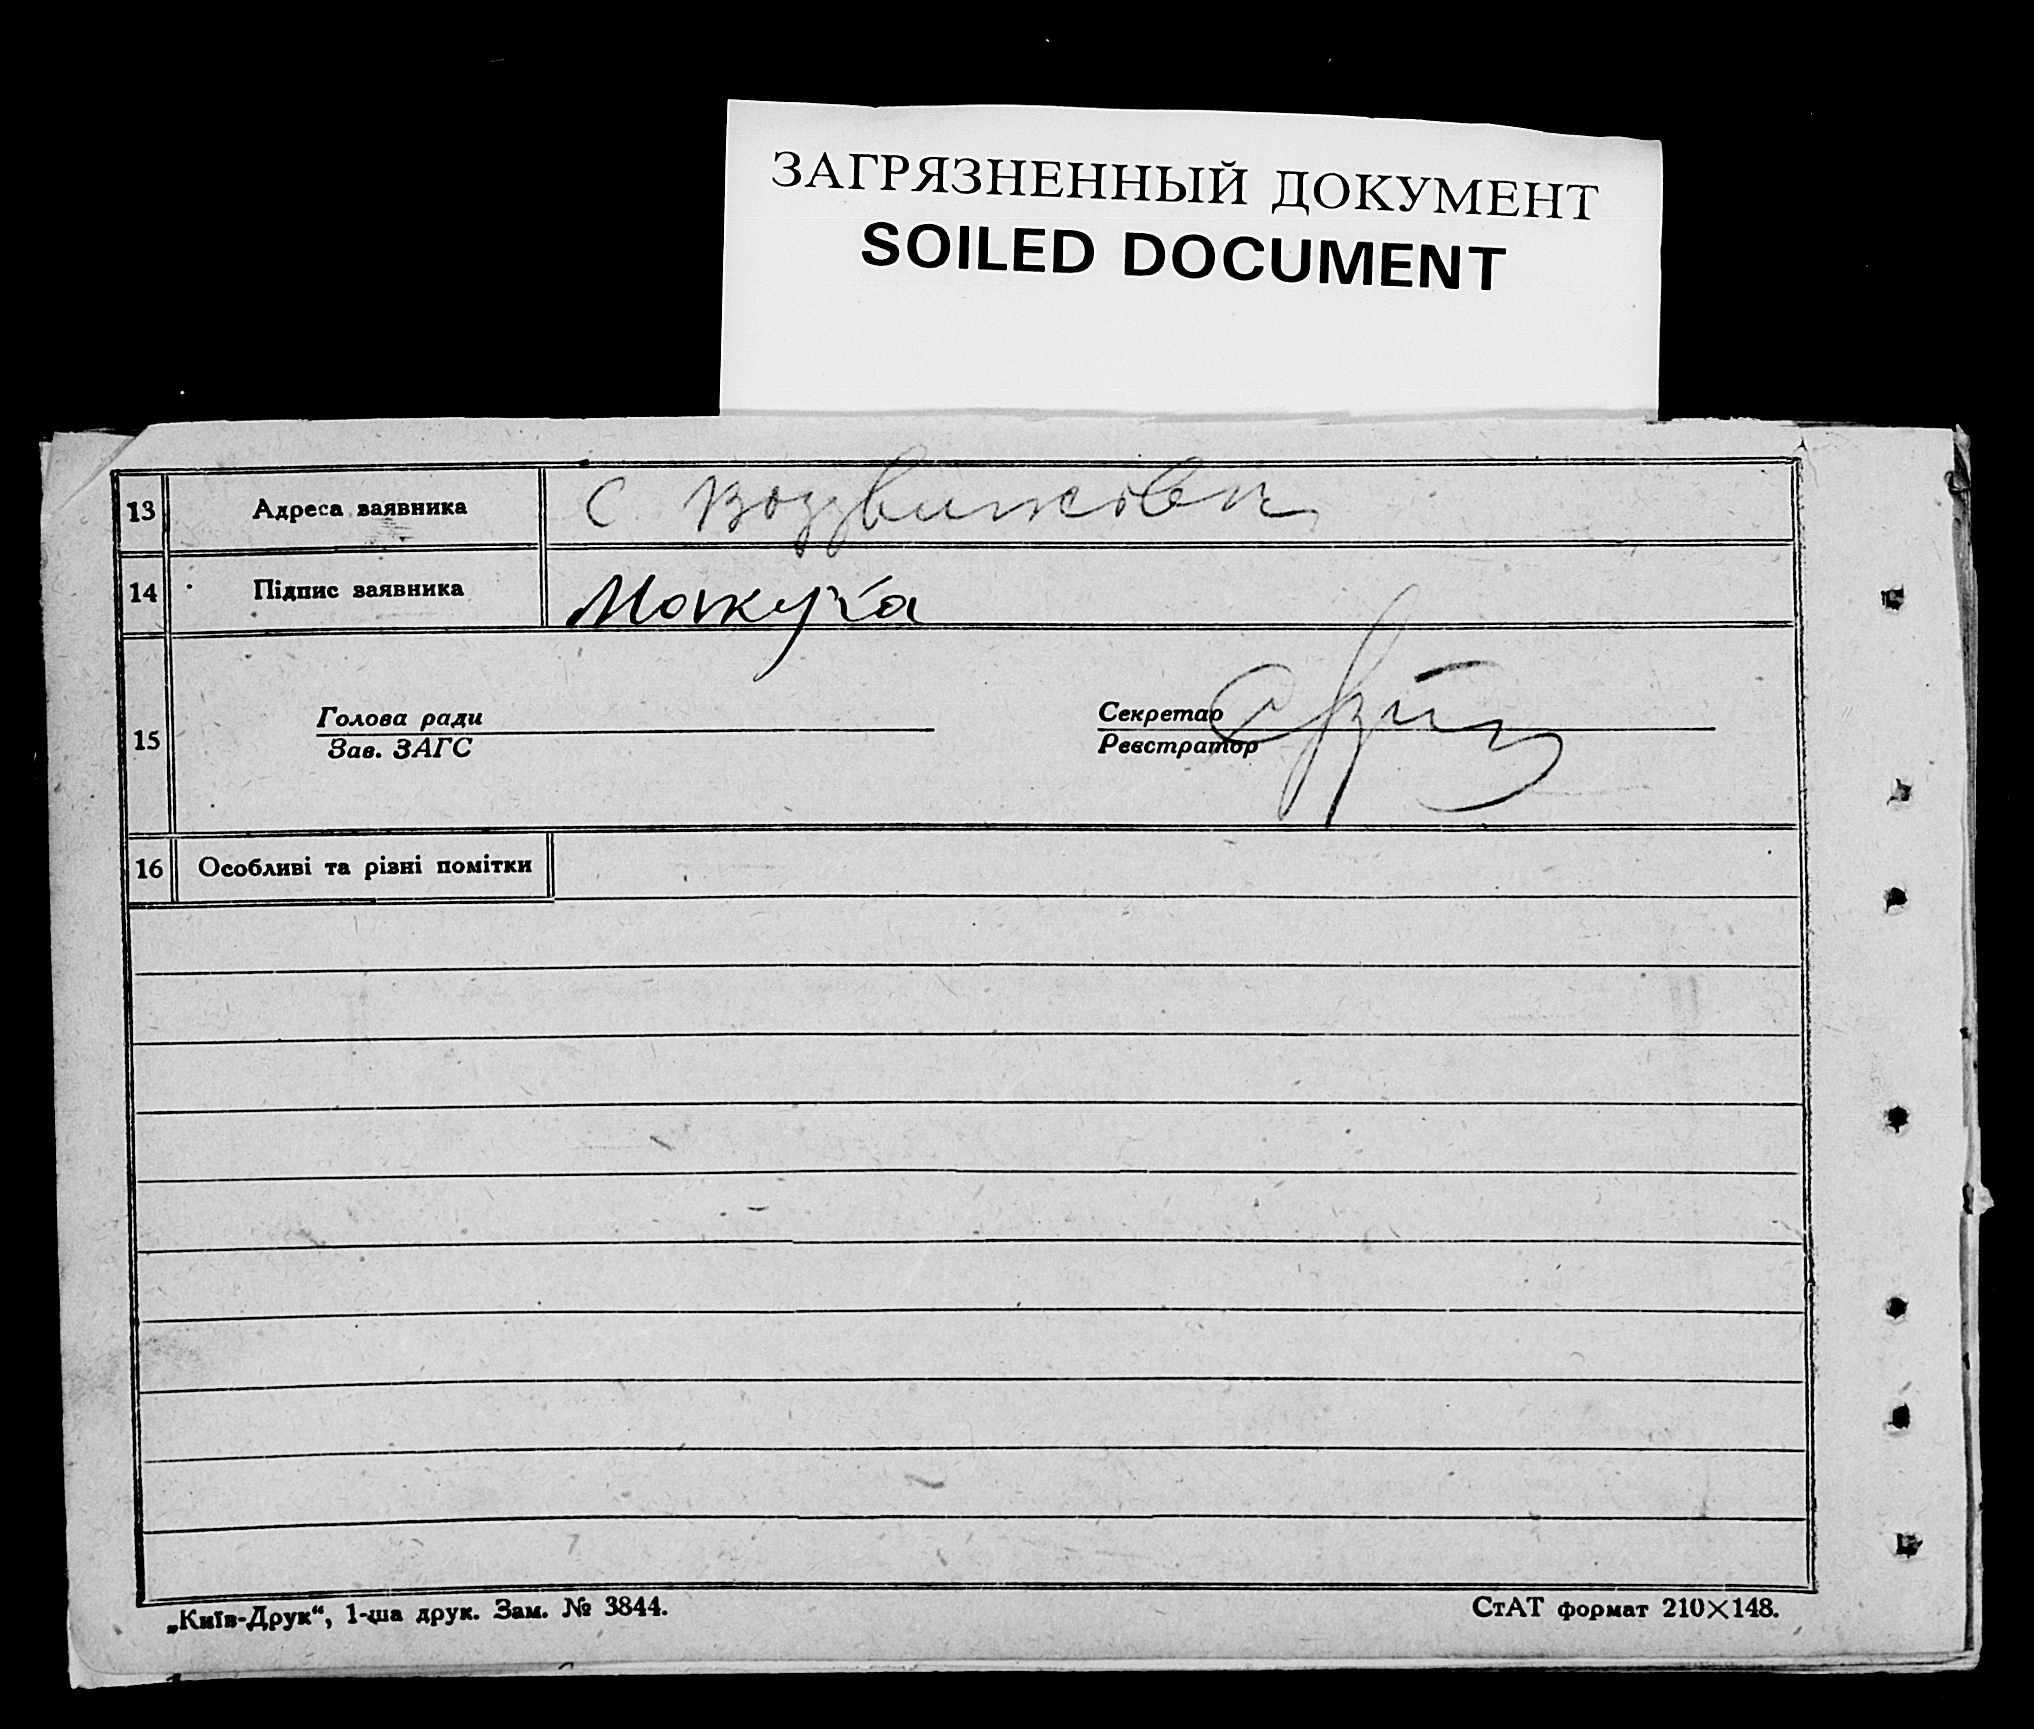 ЗАГРЯЗНЕННЫЙ ДОКУМЕНТ
SOILED DOCUMENT
13 Адреса заявника с Воздвижівка
14 Підпис заявника Макуха
15 Голова ради Секретар
Зав. ЗАГС Реєстратор
16 Особливі та різні помітки
„Київ-Друк“, 1-ша друк. Зам. № 3844. СтАТ формат 210×148.